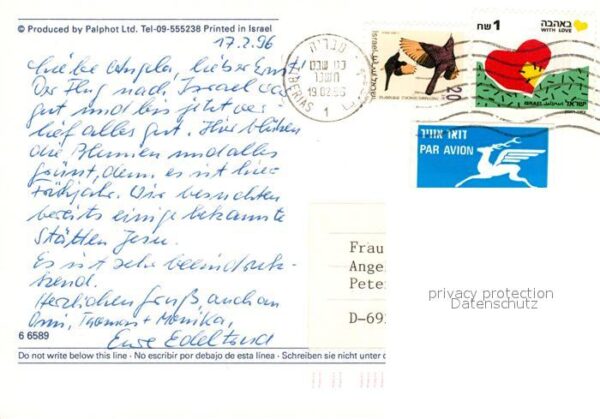 © Produced by Palphot Ltd. Tel-09-555238 Printed in Israel
17.2.96
Liebe Angela, lieber Ernst!
Der Flug nach Israel war
gut und bis jetzt ver
lief alles gut. Hier blühen
die Blumen und alles
grünt, denn es ist hier
Frühjahr. Wir besuchten
bereits einige bekannte
Stätten Jesu.
Es ist sehr beeindruk-
kend.
Herzlichen Gruß auch an
Omi, Thomas + Monika,
Eure Edeltraud
6 6589
Do not write below this line · No escribir por debajo de esta línea · Schreiben sie nicht unter d
טבריה
TIBERIAS
19.02.96
1
Israel
20
באהבה
WITH LOVE
1 שח
ISRAEL
ישראל
דואר אויר
PAR AVION
Frau
Ange
Pete
D-69
privacy protection
Datenschutz